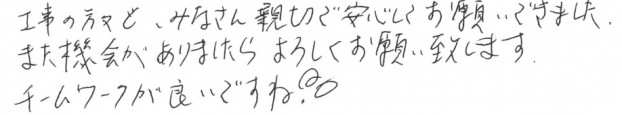 工事の方々も、みなさん親切で安心してお願いできました.
また機会がありましたらよろしくお願い致します.
チームワークが良いですね?